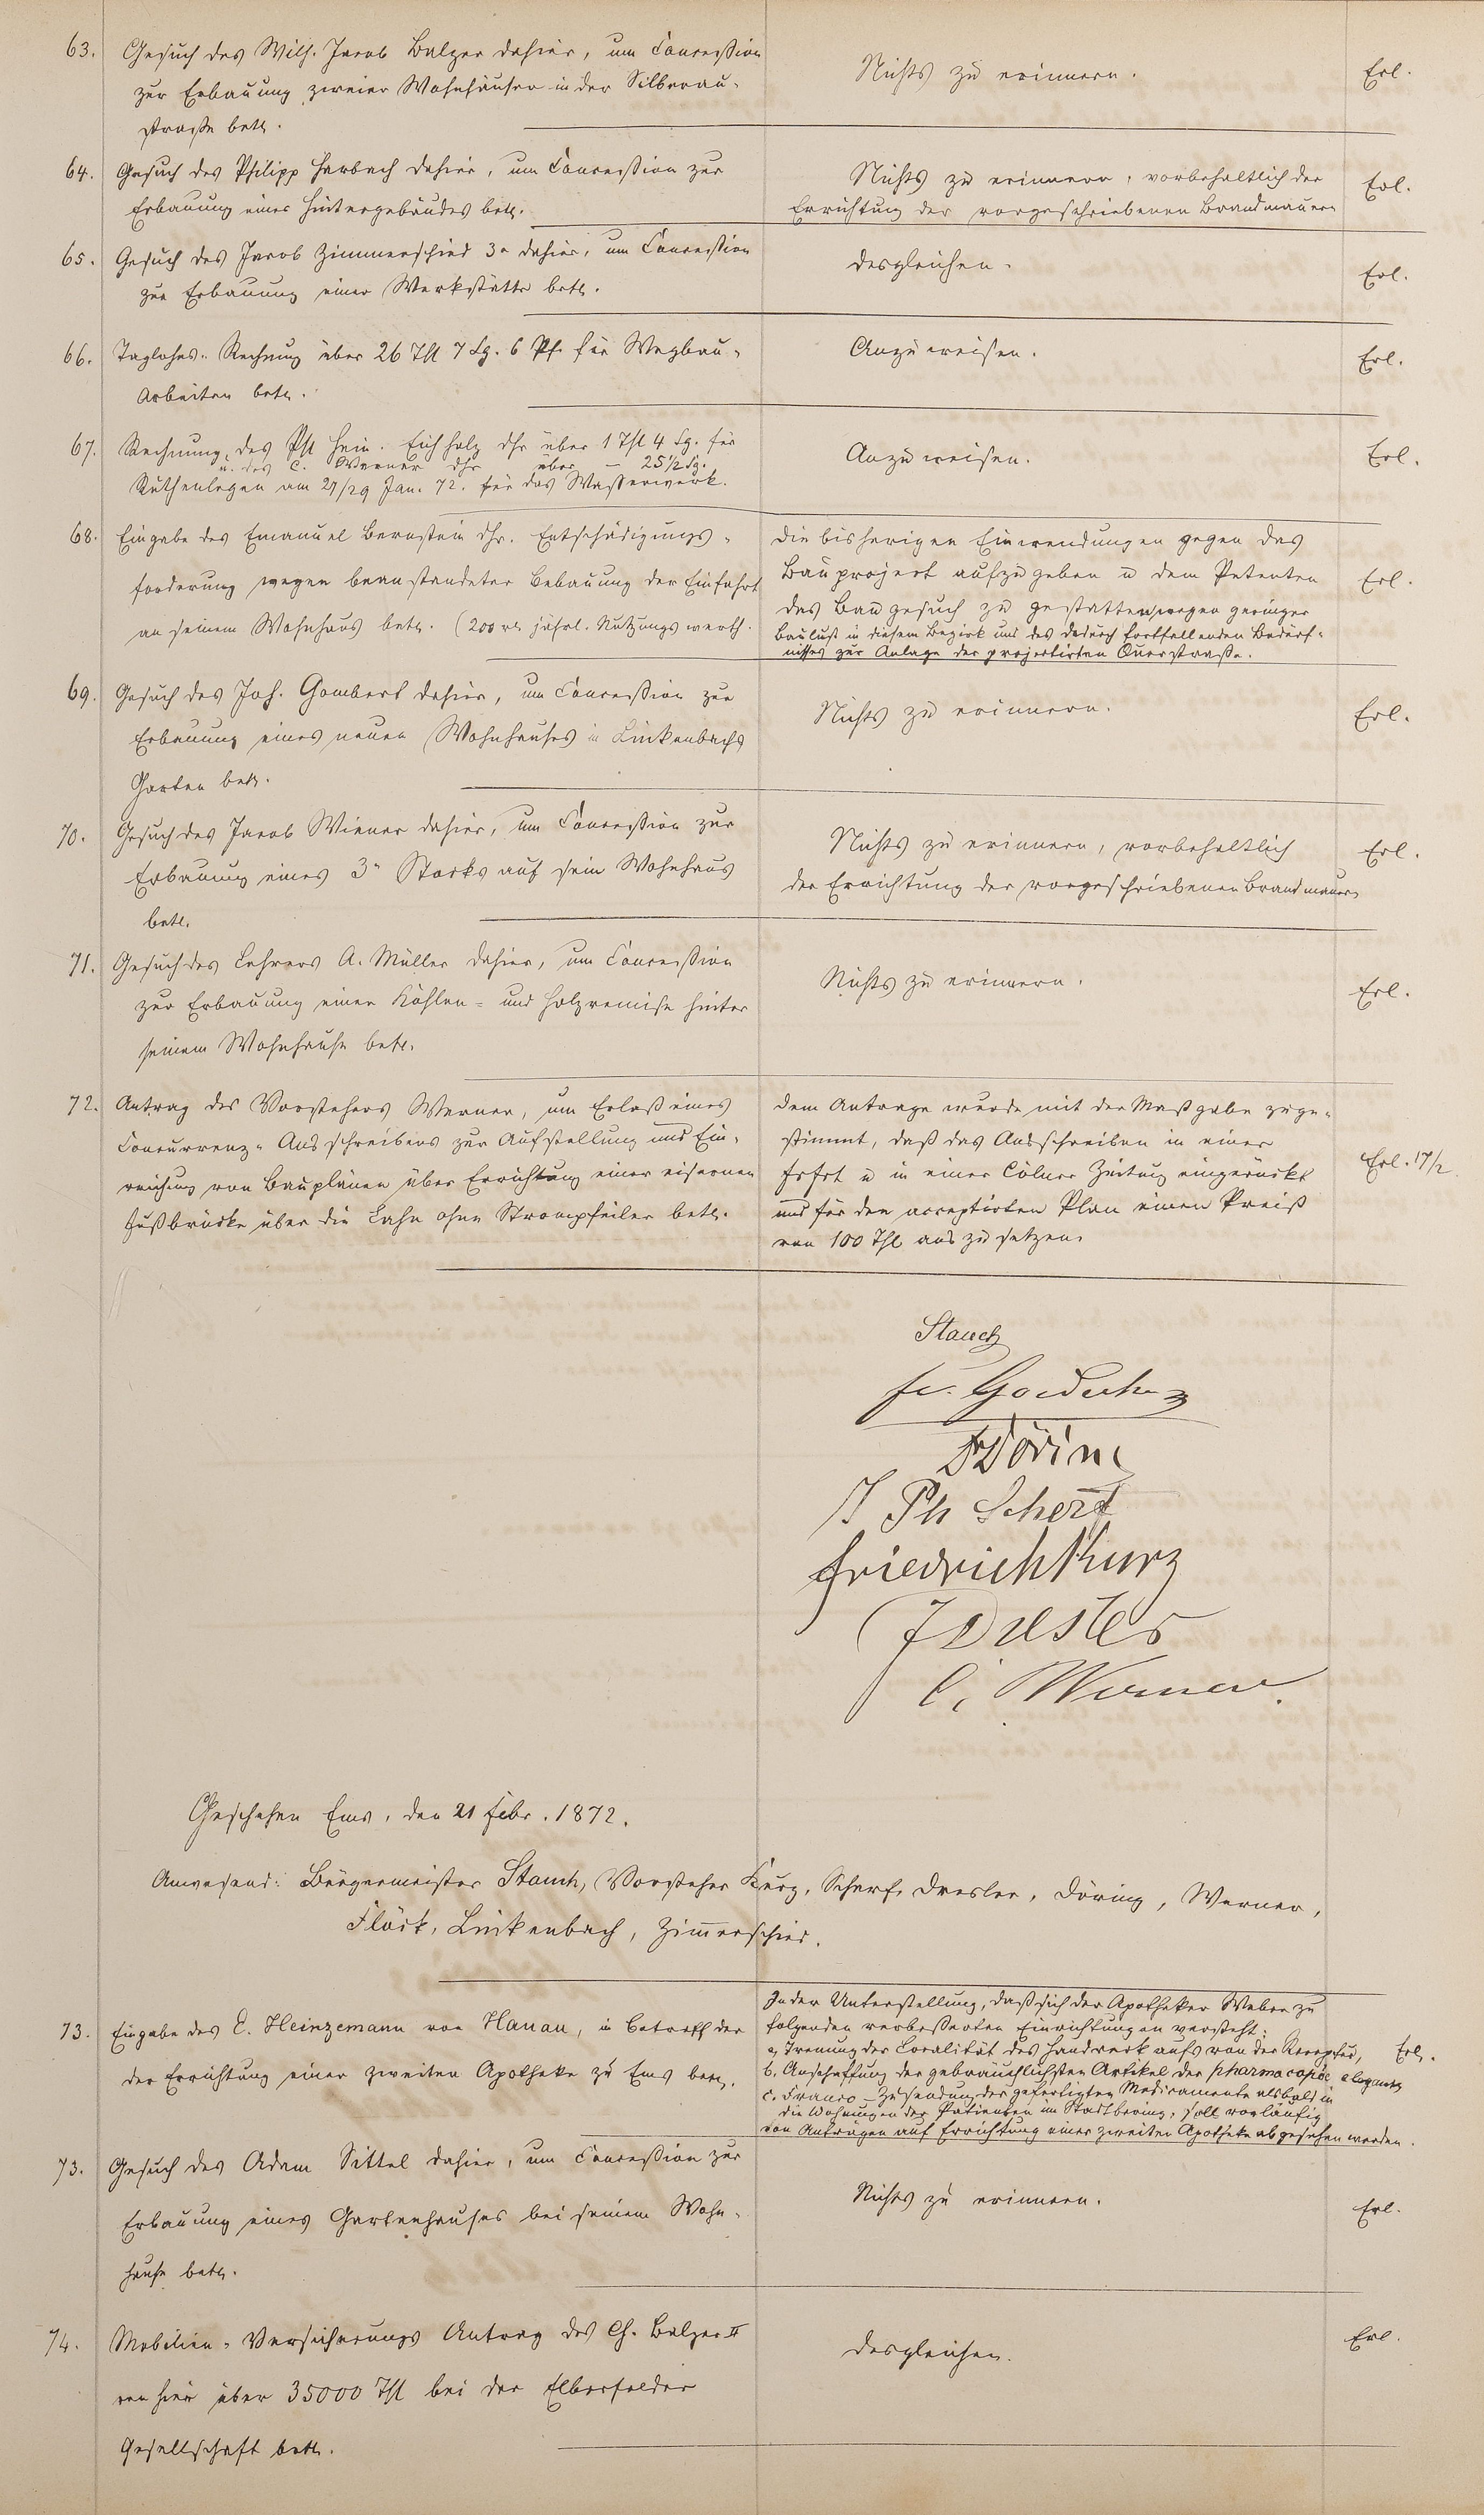 63. Gesuch des Wilh. Jacob Balzer dahier, um Concession
zur Erbauung zweier Wohnhäuser in der Silberau-
straße betr.
Nichts zu erinnern.
Erl.
64. Gesuch des Philipp Harbach dahier, um Concession zur
Erbauung eines Hintergebäudes betr.
Nichts zu erinnern, vorbehaltlich der
Errichtung der vorgeschriebenen Brandmauern
Erl.
65. Gesuch des Jacob Zimmerschied 3r dahier, um Concession
zur Erbauung einer Werkstätte betr.
desgleichen.
Erl.
66. Taglohns-Rechnung über 26 Thl 7 Sg. 6 Pf. für Wegbau-
Arbeiten betr.
Anzuweisen.
Erl.
67. Rechnung des Phl Hein. Eichholz dhr über 1 Thl 4 Sg. für
u. des C. Werner dhr über – 25½ Sg.
Ruthenlegen am 27/29 Jan. 72. für das Wasserwerk.
Anzuweisen.
Erl.
68. Eingabe des Emanuel Bernstein dhr. Entschädigungs-
forderung wegen beanstandeter Bebauung der Einfahrt
an seinem Wohnhaus betr. (200 rl jährl. Nutzungswerth.
die bisherigen Einwendungen gegen das
Bauproject aufzugeben u dem Petenten
das Baugesuch zu gestatten, wegen geringer
Baulust in diesem Bezirk und des dadurch fortfallenden Bedürf-
nisses zur Anlage der projectirten Querstraße.
Erl.
69. Gesuch des Joh. Gombert dahier, um Concession zur
Erbauung eines neuen Wohnhauses in Linkenbachs
Garten betr.
Nichts zu erinnern.
Erl.
70. Gesuch des Jacob Wiener dahier, um Concession zur
Erbauung eines 3n Stocks auf sein Wohnhaus
betr.
Nichts zu erinnern, vorbehaltlich
der Errichtung der vorgeschriebenen Brandmauern
Erl.
71. Gesuch des Lehrers A. Müller dahier, um Concession
zur Erbauung einer Kohlen- und Holzremise hinter
seinem Wohnhause betr.
Nichts zu erinnern.
Erl.
72. Antrag des Vorstehers Werner, um Erlaß eines
Concurrenz-Ausschreibens zur Aufstellung und Ein-
reichung von Bauplänen über Errichtung einer eisernen
Fußbrücke über die Lahn ohne Strompfeiler betr.
dem Antrage wurde mit der Maßgabe zuge-
stimmt, daß das Ausschreiben in einer
Frfrt u in einer Cölner Zeitung eingerückt
und für den acceptirten Plan einen Preiß
von 100 Thl auszusetzen.
Erl. 17/2
Stauch
Döring
J Ph Scherf
Friedrich Kurz
Dresler
C. Werner.
Geschehen Ems, den 21 Febr. 1872.
Anwesend: Bürgermeister Stauch, Vorsteher Kurz, Scherf, Dresler, Döring, Werner,
Flöck, Linkenbach, Zimerschied.
73. Eingabe des E. Heinzemann von Hanau, in Betreff der
der Errichtung einer zweiten Apotheke zu Ems betr.
In der Unterstellung, daß sich der Apotheker Weber zu
folgenden verbesserten Einrichtungen versteht:
a, Trennung der Localität des Handverkaufs von der Receptur,
b. Anschaffung der gebräuchlichsten Artikel der pharmacopöe elegante
c. Franco-Zusendung der gefertigten Medicamente alsbald in
die Wohnungen der Patienten im Stadtbering, soll vorläufig
von Anträgen auf Errichtung einer zweiten Apotheke abgesehen werden.
Erl.
73. Gesuch des Adam Sittel dahier, um Concession zur
Erbauung eines Gartenhauses bei seinem Wohn-
hause betr.
Nichts zu erinnern.
Erl.
74. Mobilien-Versicherungs Antrag des Ch. Balzer II
von hier über 35000 Thl bei der Elberfelder
Gesellschaft betr.
desgleichen.
Erl.